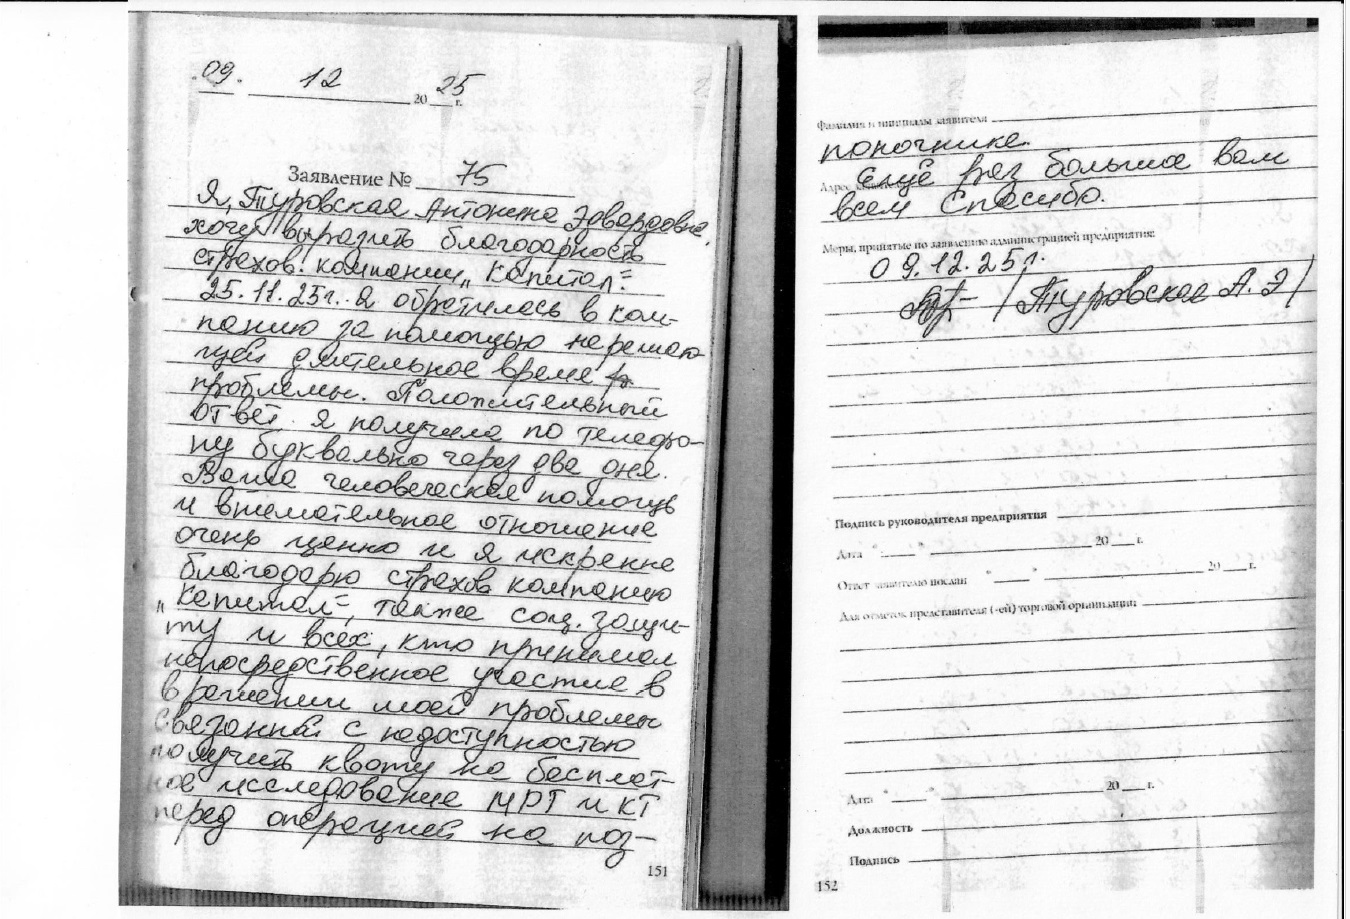 09. 12 2025 г.
Заявление № 75
Я, Туровская Антонина Эдвардовна,
хочу выразить благодарность
страхов. компании „Капитал“
25.11.25г. я обратилась в ком-
панию за помощью нерешаю-
щей длительное время
проблемы. Положительный
ответ я получила по телефо-
ну буквально через два дня.
Ваша человеческая помощь
и внимательное отношение
очень ценно и я искренне
благодарю страхов компанию
„Капитал“, также соц. защи-
ту и всех, кто принимал
непосредственное участие в
в решении моей проблемы
связанной с недоступностью
получить квоту на бесплат-
ное исследование МРТ и КТ
перед операцией на поз-
151
Фамилия и инициалы заявителя
поночнике.
Адрес
Ещё раз большое вам
всем Спасибо.
Меры, принятые по заявлению администрацией предприятия:
09.12.25г.
/Туровская А.Э/
Подпись руководителя предприятия
Дата " " 20 г.
Ответ заявителю послан " " 20 г.
Для отметок представителя (-ей) торговой организации:
Дата " " 20 г.
Должность
Подпись
152